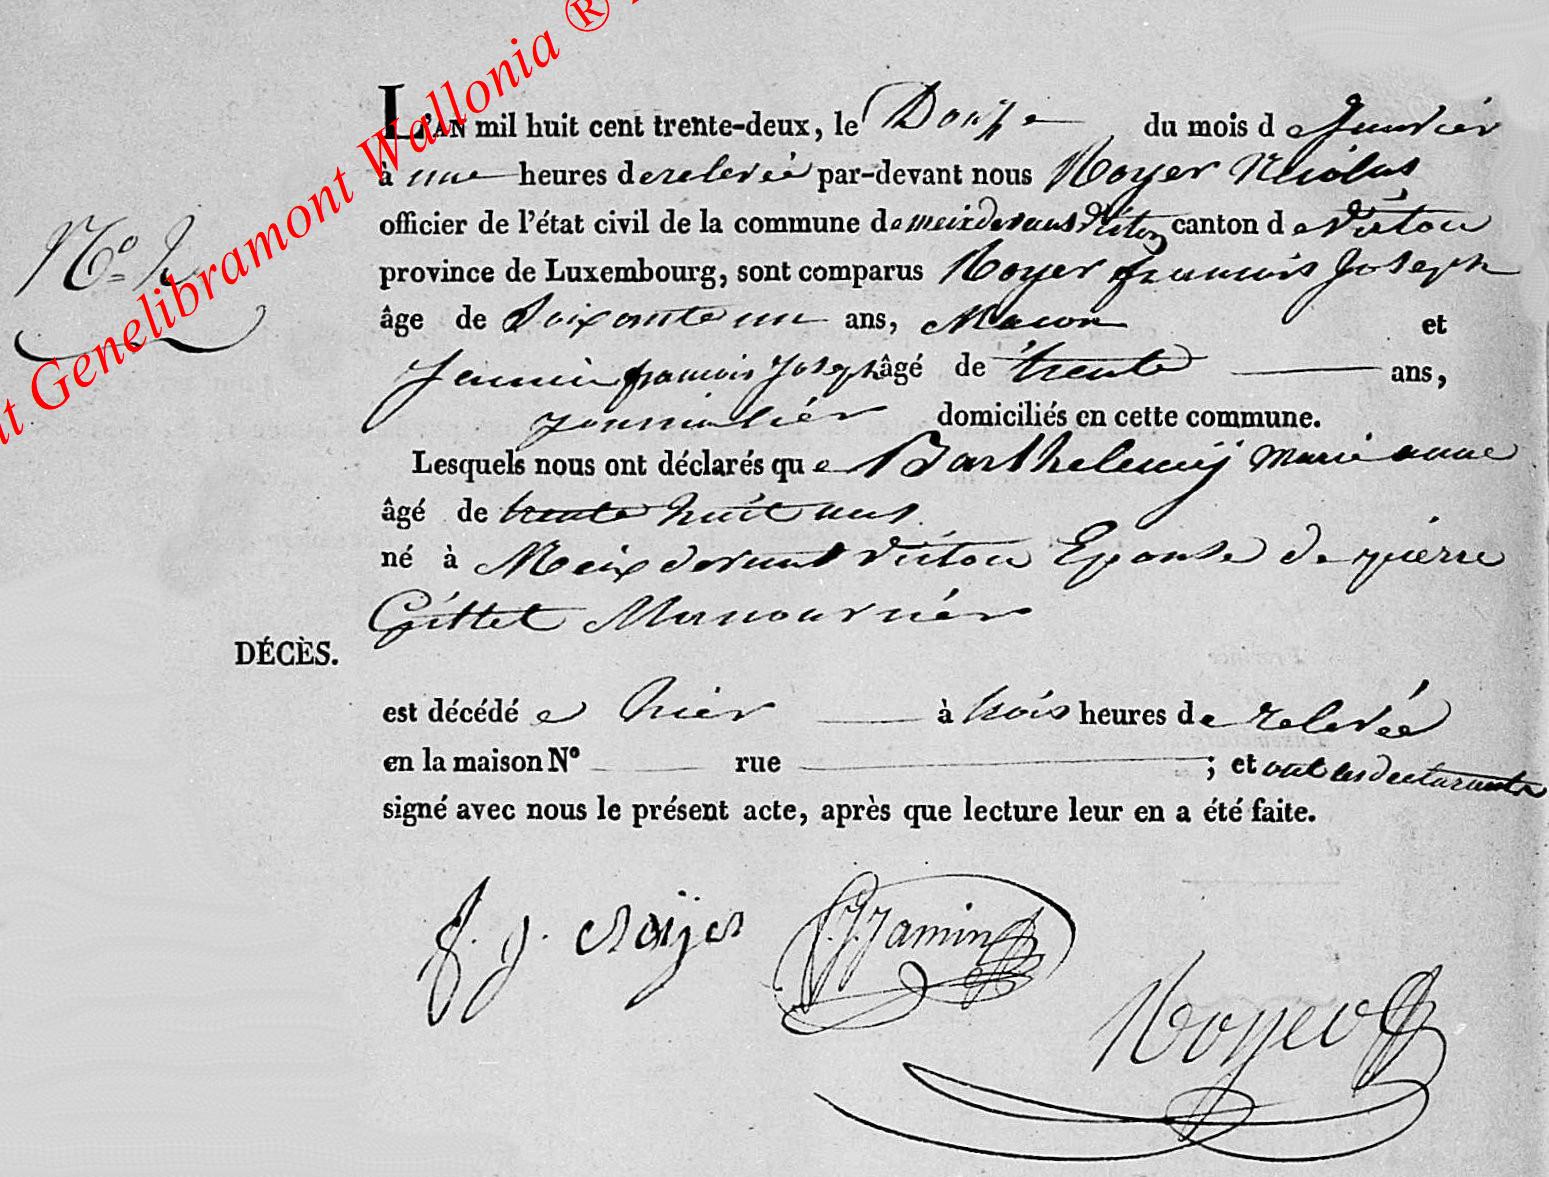 it Genelibramont Wallonia ®
L'AN mil huit cent trente-deux, le Douze du mois de Janvier
à une heures de relevée par-devant nous Noyer Nicolas
officier de l'état civil de la commune de meix devant Virton canton de Virton
province de Luxembourg, sont comparus Noyer françois Joseph
âge de Soixante un ans, Macon et
Jamin françois Joseph âgé de trente ans,
journalier domiciliés en cette commune.
N° 2
Lesquels nous ont déclarés que Barthelemÿ Marie anne
âgé de trente huit ans
né à Meix devant Virton Epouse de pierre
Gillet Manouvrier
DÉCÈS.
est décédé e hier à trois heures de relevée
en la maison N° rue ; et ont les declarants
signé avec nous le présent acte, après que lecture leur en a été faite.
f. j. Noÿer
f. J. Jamin
Noyer